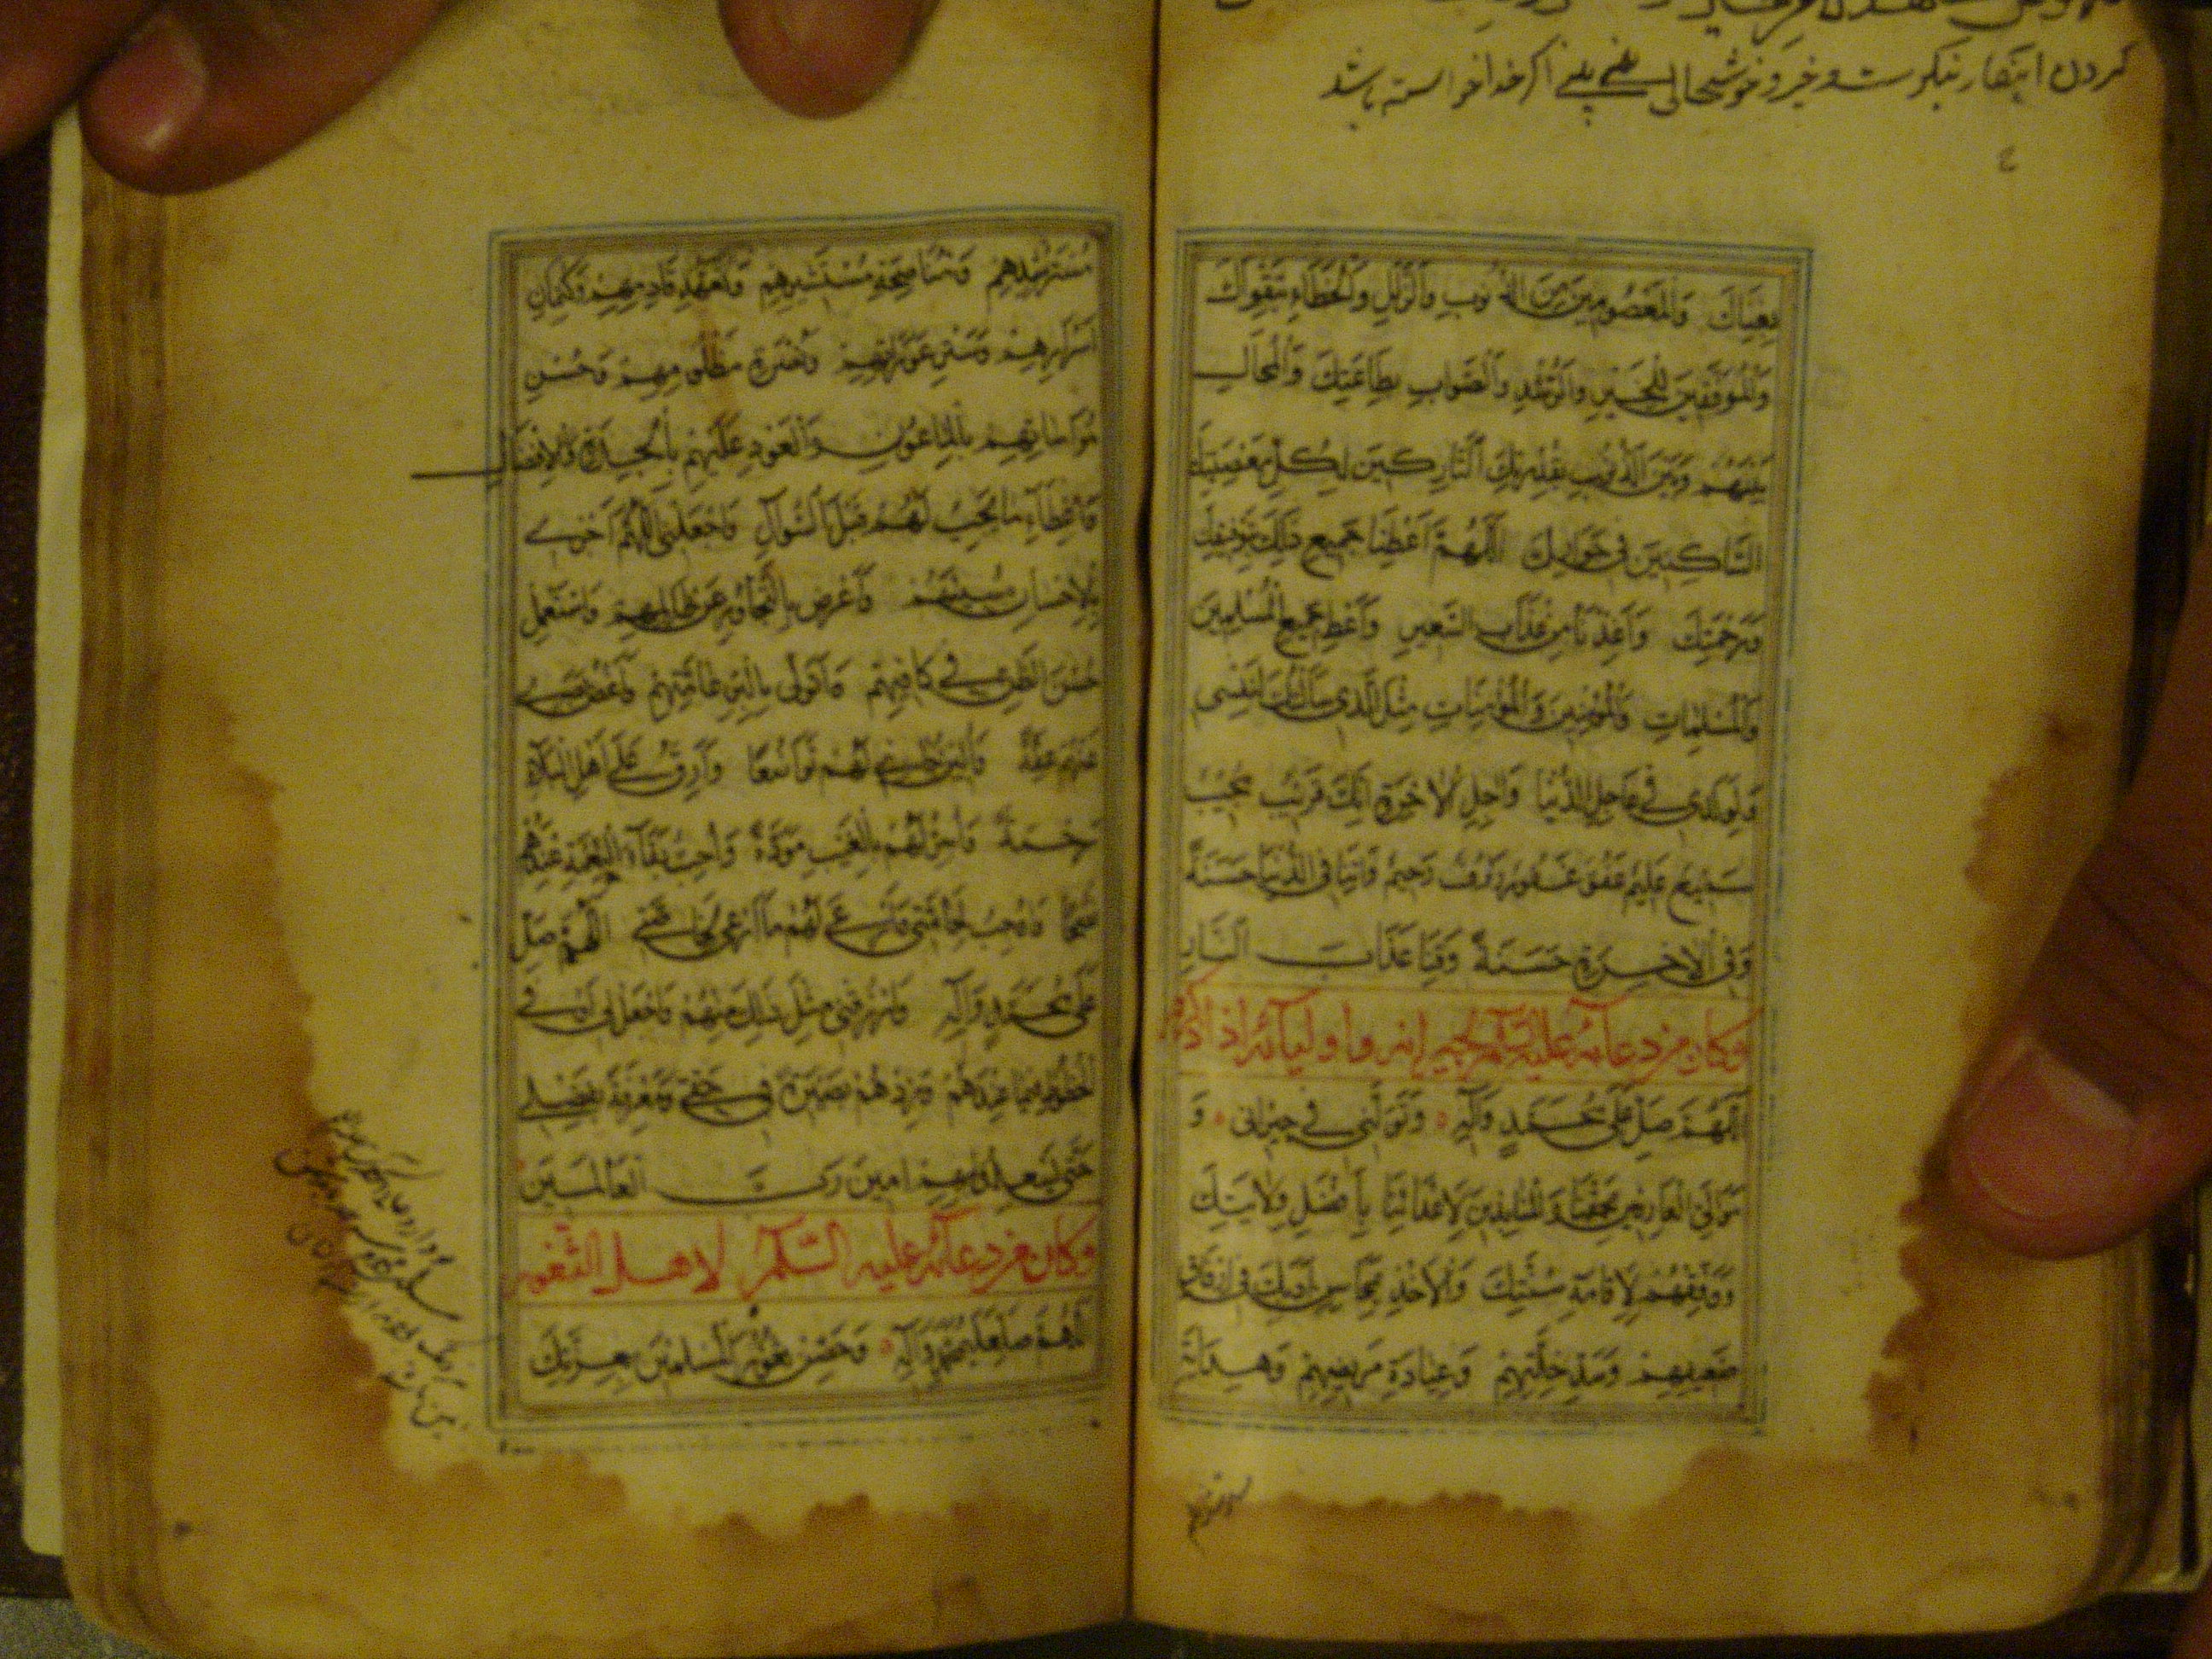 كردن اينها نيكوست و خير و خوشحالى اكر خدا خواسته باشد
وَالْمَعْصُومِينَ مِنَ الذُّنُوبِ وَالزَّلَلِ وَالْخَطَاءِ بِتَقْوَاكَ
وَالْمُوَفَّقِينَ لِلْخَيْرِ وَالرُّشْدِ وَالصَّوَابِ بِطَاعَتِكَ وَالْمُحَالِ
بَيْنَهُمْ وَبَيْنَ الذُّنُوبِ بِقُدْرَتِكَ التَّارِكِينَ لِكُلِّ مَعْصِيَتِكَ
السَّاكِنِينَ فِي جِوَارِكَ اللَّهُمَّ أَعْطِنَا جَمِيعَ ذَلِكَ بِتَوْفِيقِكَ
وَرَحْمَتِكَ وَأَعِذْنَا مِنْ عَذَابِ السَّعِيرِ وَأَعْطِ جَمِيعَ الْمُسْلِمِينَ
وَالْمُسْلِمَاتِ وَالْمُؤْمِنِينَ وَالْمُؤْمِنَاتِ مِثْلَ الَّذِي سَأَلْتُكَ لِنَفْسِي
وَلِوَلَدِي فِي عَاجِلِ الدُّنْيَا وَآجِلِ الْآخِرَةِ إِنَّكَ قَرِيبٌ مُجِيبٌ
سَمِيعٌ عَلِيمٌ عَفُوٌّ غَفُورٌ رَؤُفٌ رَحِيمٌ وَآتِنَا فِي الدُّنْيَا حَسَنَةً
وَفِي الْآخِرَةِ حَسَنَةً وَقِنَا عَذَابَ النَّارِ
وكان من دعائه عليه السلم لجيرانه واوليائه اذا ذكرهم
اللَّهُمَّ صَلِّ عَلَى مُحَمَّدٍ وَآلِهِ وَتَوَلَّنِي فِي جِيرَانِي وَ
مَوَالِيَّ الْعَارِفِينَ بِحَقِّنَا وَالْمُنَابِذِينَ لِأَعْدَائِنَا بِأَفْضَلِ وَلَايَتِكَ
وَوَفِّقْهُمْ لِإِقَامَةِ سُنَّتِكَ وَالْأَخْذِ بِمَحَاسِنِ أَدَبِكَ فِي إِرْفَاقِ
ضَعِيفِهِمْ وَسَدِّ خَلَّتِهِمْ وَعِيَادَةِ مَرِيضِهِمْ وَهِدَايَةِ
مُسْتَرْشِدِهِمْ وَمُنَاصَحَةِ مُسْتَشِيرِهِمْ وَتَعَهُّدِ قَادِمِهِمْ وَكِتْمَانِ
أَسْرَارِهِمْ وَسَتْرِ عَوْرَاتِهِمْ وَنُصْرَةِ مَظْلُومِهِمْ وَحُسْنِ
مُوَاسَاتِهِمْ بِالْمَاعُونِ وَالْعَوْدِ عَلَيْهِمْ بِالْجِدَةِ وَالْإِفْضَالِ
وَإِعْطَاءِ مَا يَجِبُ لَهُمْ قَبْلَ السُّؤَالِ وَاجْعَلْنِي اللَّهُمَّ أَجْزِي
بِالْإِحْسَانِ مُسِيئَهُمْ وَأُعْرِضُ بِالتَّجَاوُزِ عَنْ ظَالِمِهِمْ وَأَسْتَعْمِلُ
حُسْنَ الظَّنِّ فِي كَافَّتِهِمْ وَأَتَوَلَّى بِالْبِرِّ عَامَّتَهُمْ وَأَغُضُّ بَصَرِي
عَنْهُمْ عِفَّةً وَأُلِينُ جَانِبِي لَهُمْ تَوَاضُعًا وَأَرِقُّ عَلَى أَهْلِ الْبَلَاءِ
رَحْمَةً وَأُسِرُّ لَهُمْ بِالْغَيْبِ مَوَدَّةً وَأُحِبُّ بَقَاءَ النِّعْمَةِ عِنْدَهُمْ
نُصْحًا وَأُوجِبُ لَهُمْ مَا أُوجِبُ لِحَامَّتِي وَأَرْعَى لَهُمْ مَا أَرْعَى لِخَاصَّتِي اللَّهُمَّ صَلِّ
عَلَى مُحَمَّدٍ وَآلِهِ وَارْزُقْنِي مِثْلَ ذَلِكَ مِنْهُمْ وَاجْعَلْ لِي أَوْفَى
الْحُظُوظِ فِيمَا عِنْدَهُمْ وَزِدْهُمْ بَصِيرَةً فِي حَقِّي وَمَعْرِفَةً بِفَضْلِي
حَتَّى يَسْعَدُوا بِي آمِينَ رَبَّ الْعَالَمِينَ
وكان من دعائه عليه السلم لاهل الثغور
اللَّهُمَّ صَلِّ عَلَى مُحَمَّدٍ وَآلِهِ وَحَصِّنْ ثُغُورَ الْمُسْلِمِينَ بِعِزَّتِكَ